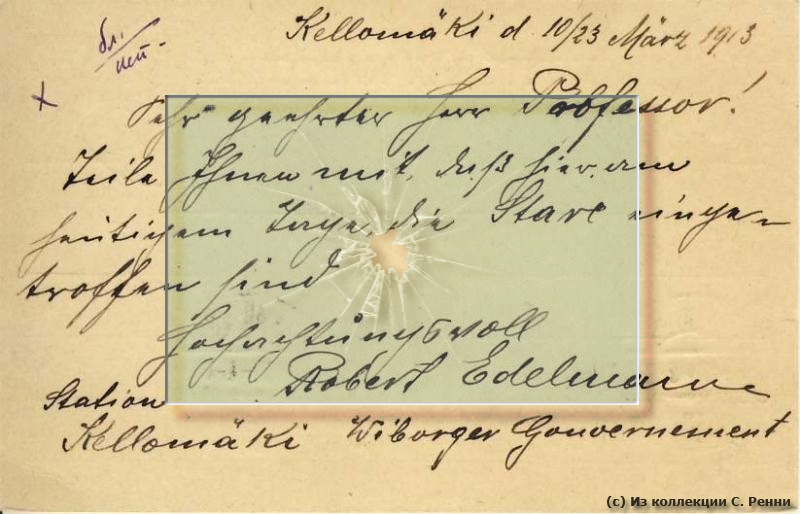 бл.
Kellomäki d. 10/23 März 1913
x
Sehr geehrter Herr Professor!
Teile Ihnen mit, daß hier am
heutigem Tage die Stare einge-
troffen sind
Hochachtungsvoll
Robert Edelmann
Station
Kellomäki Wiborger Gouvernement
(c) Из коллекции С. Ренни